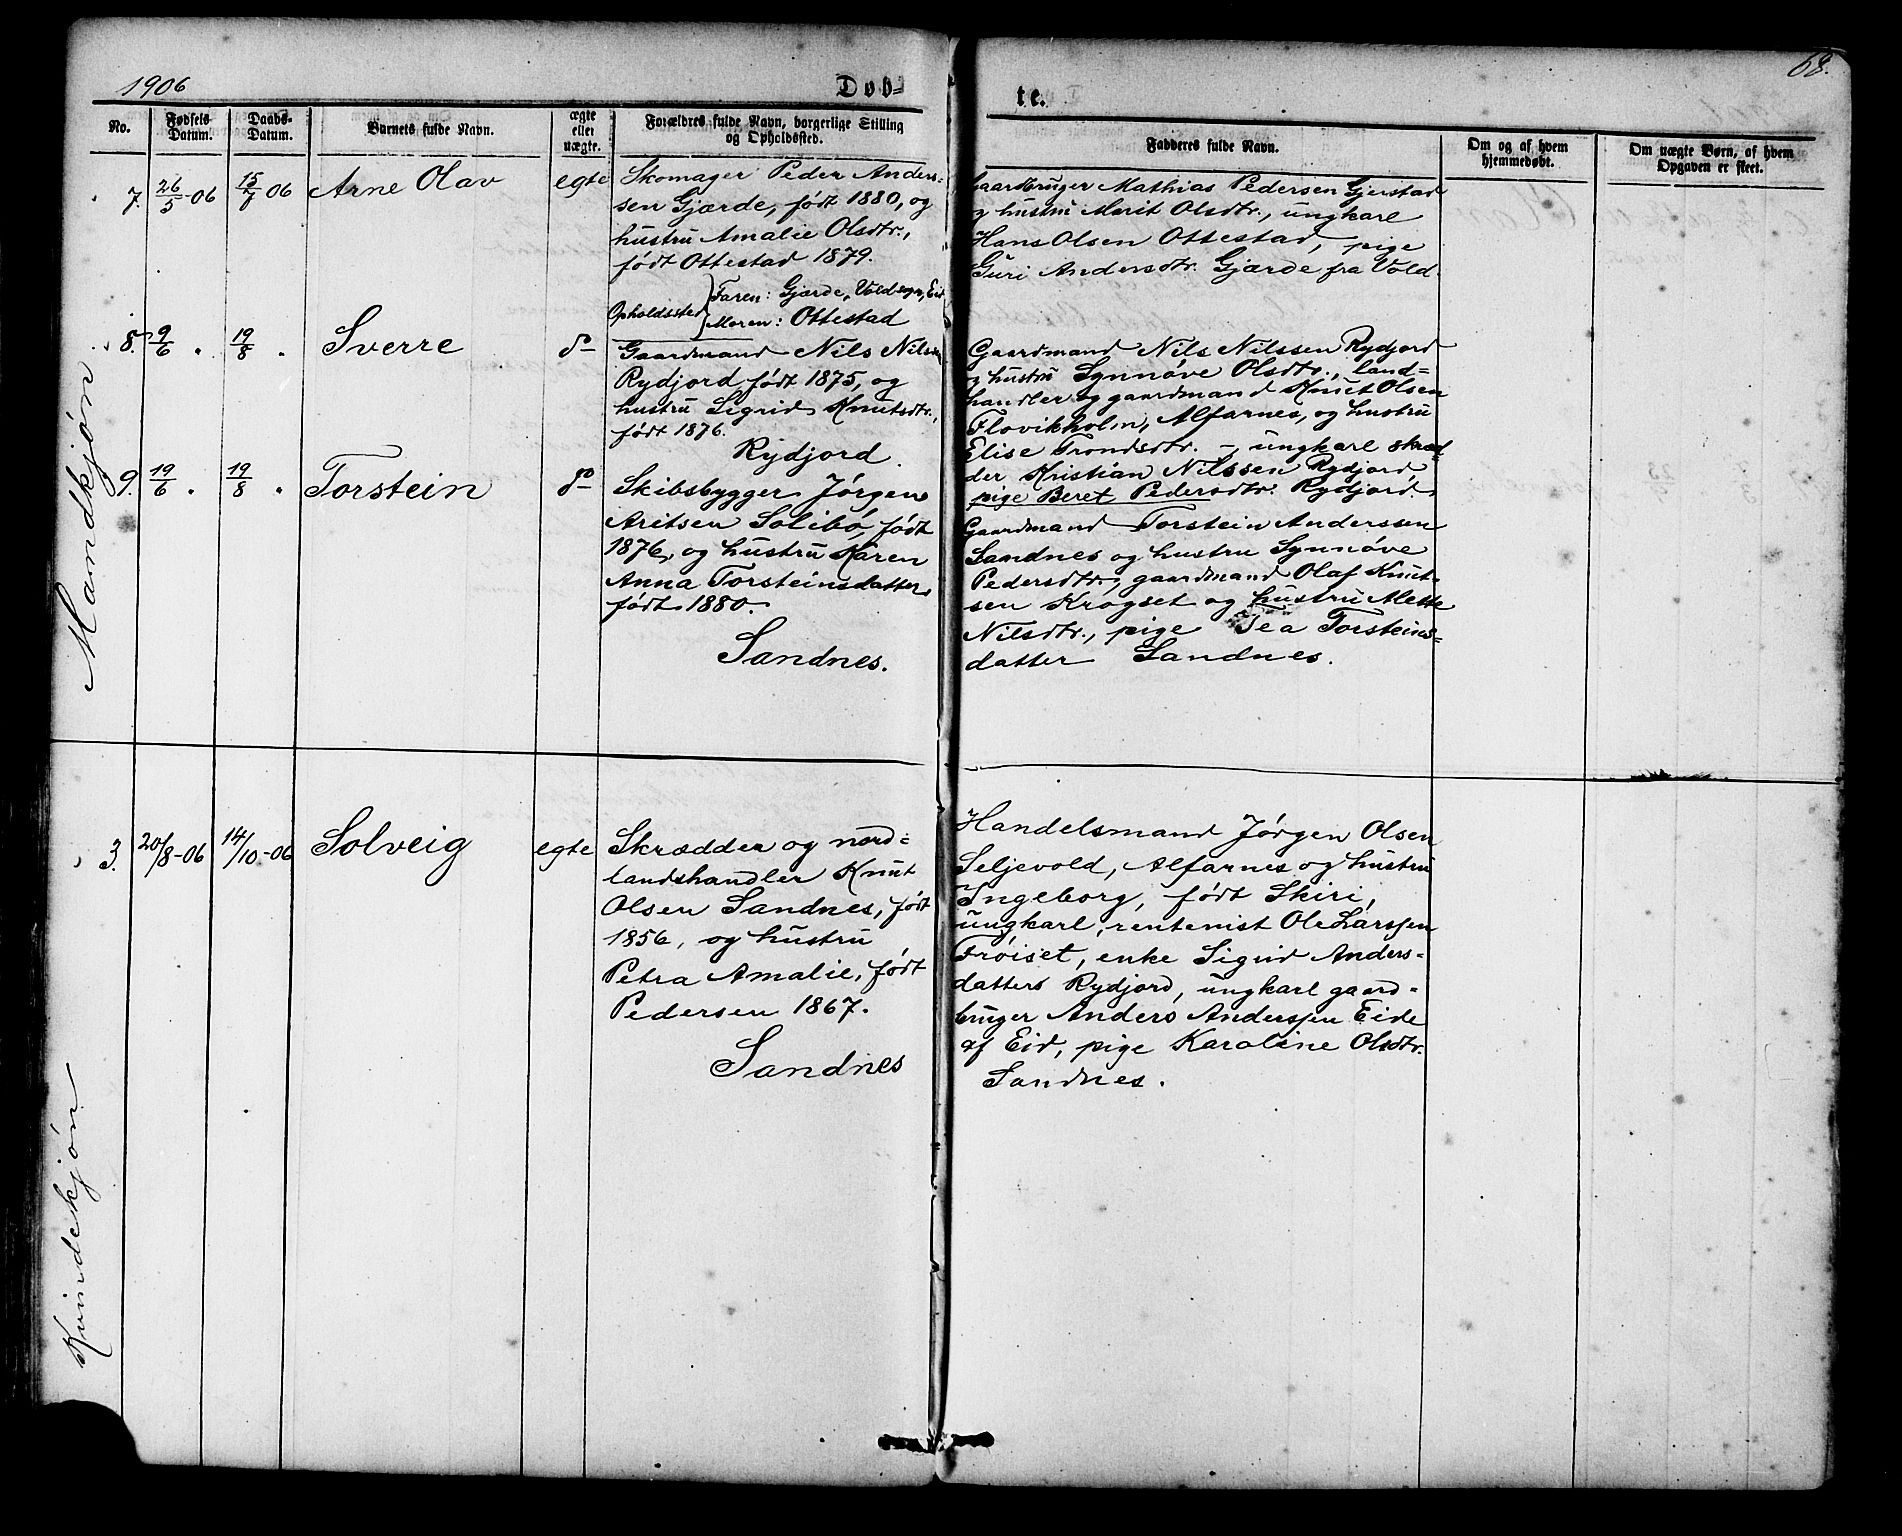 1906
Døb-
te.
68.
No.
Fødsels-
Datum.
Daabs-
Datum.
Barnets fulde Navn.
ægte
eller
uægte.
Forældres fulde Navn, borgerlige Stilling
og Opholdssted.
Fadderes fulde Navn.
Om og af hvem
hjemmedøbt.
Om uægte Børn, af hvem
Opgaven er skeet.
Mandkjøn.
7. 26/5 -06 15/7 06 Arne Olav egte
Skomager Peder Anders-
sen Gjærde, født 1880, og
hustru Amalie Olsdtr.,
født Ottestad 1879.
Opholdssted { Faren: Gjærde, Vold sogn, Eid
Moren: Ottestad
Gaardbruger Mathias Pedersen Gjerstad
og hustru Marit Olsdtr., ungkarl
Hans Olsen Ottestad, pige
Guri Andersdtr. Gjærde fra Vold
8. 9/6 " 19/8 " Sverre do
Gaardmand Nils Nilsen
Rydjord, født 1875, og
hustru Sigrid Knutsdtr.,
født 1876.
Rydjord.
Gaardmand Nils Nilssen Rydjord
og hustru Synnøve Olsdtr., land-
handler og gaardmand Knut Olsen
Flovikholm, Alfarnes, og hustru
Elise Trondsdtr. -, ungkarl skræd-
der Kristian Nilssen Rydjord
pige Beret Pedersdtr. Rydjord.
9. 19/6 " 19/8 " Torstein do
Skibsbygger Jørgen
Aritsen Solibø, født
1876, og hustru Karen
Anna Torsteinsdatter,
født 1880.
Sandnes.
Gaardmand Torstein Anderssen
Sandnes og hustru Synnøve
Pedersdtr., gaardmand Olaf Knut-
sen Krogset og hustru Mette
Nilsdtr., pige Tea Torsteins-
datter Sandnes.
Kvindekjøn.
3. 20/8 -06 14/10 -06 Solveig egte
Skrædder og nord-
landshandler Knut
Olsen Sandnes, født
1856, og hustru
Petra Amalie, født
Pedersen 1867.
Sandnes
Handelsmand Jørgen Olsen
Seljevold, Alfarnes og hustru
Ingeborg, født Skiri,
ungkarl, rentenist Ole Larssen
Frøiset, enke Sigrid Anders-
datters Rydjord, ungkarl gaard-
bruger Anders Anderssen Eide
af Eid, pige Karoline Olsdtr.
Sandnes.